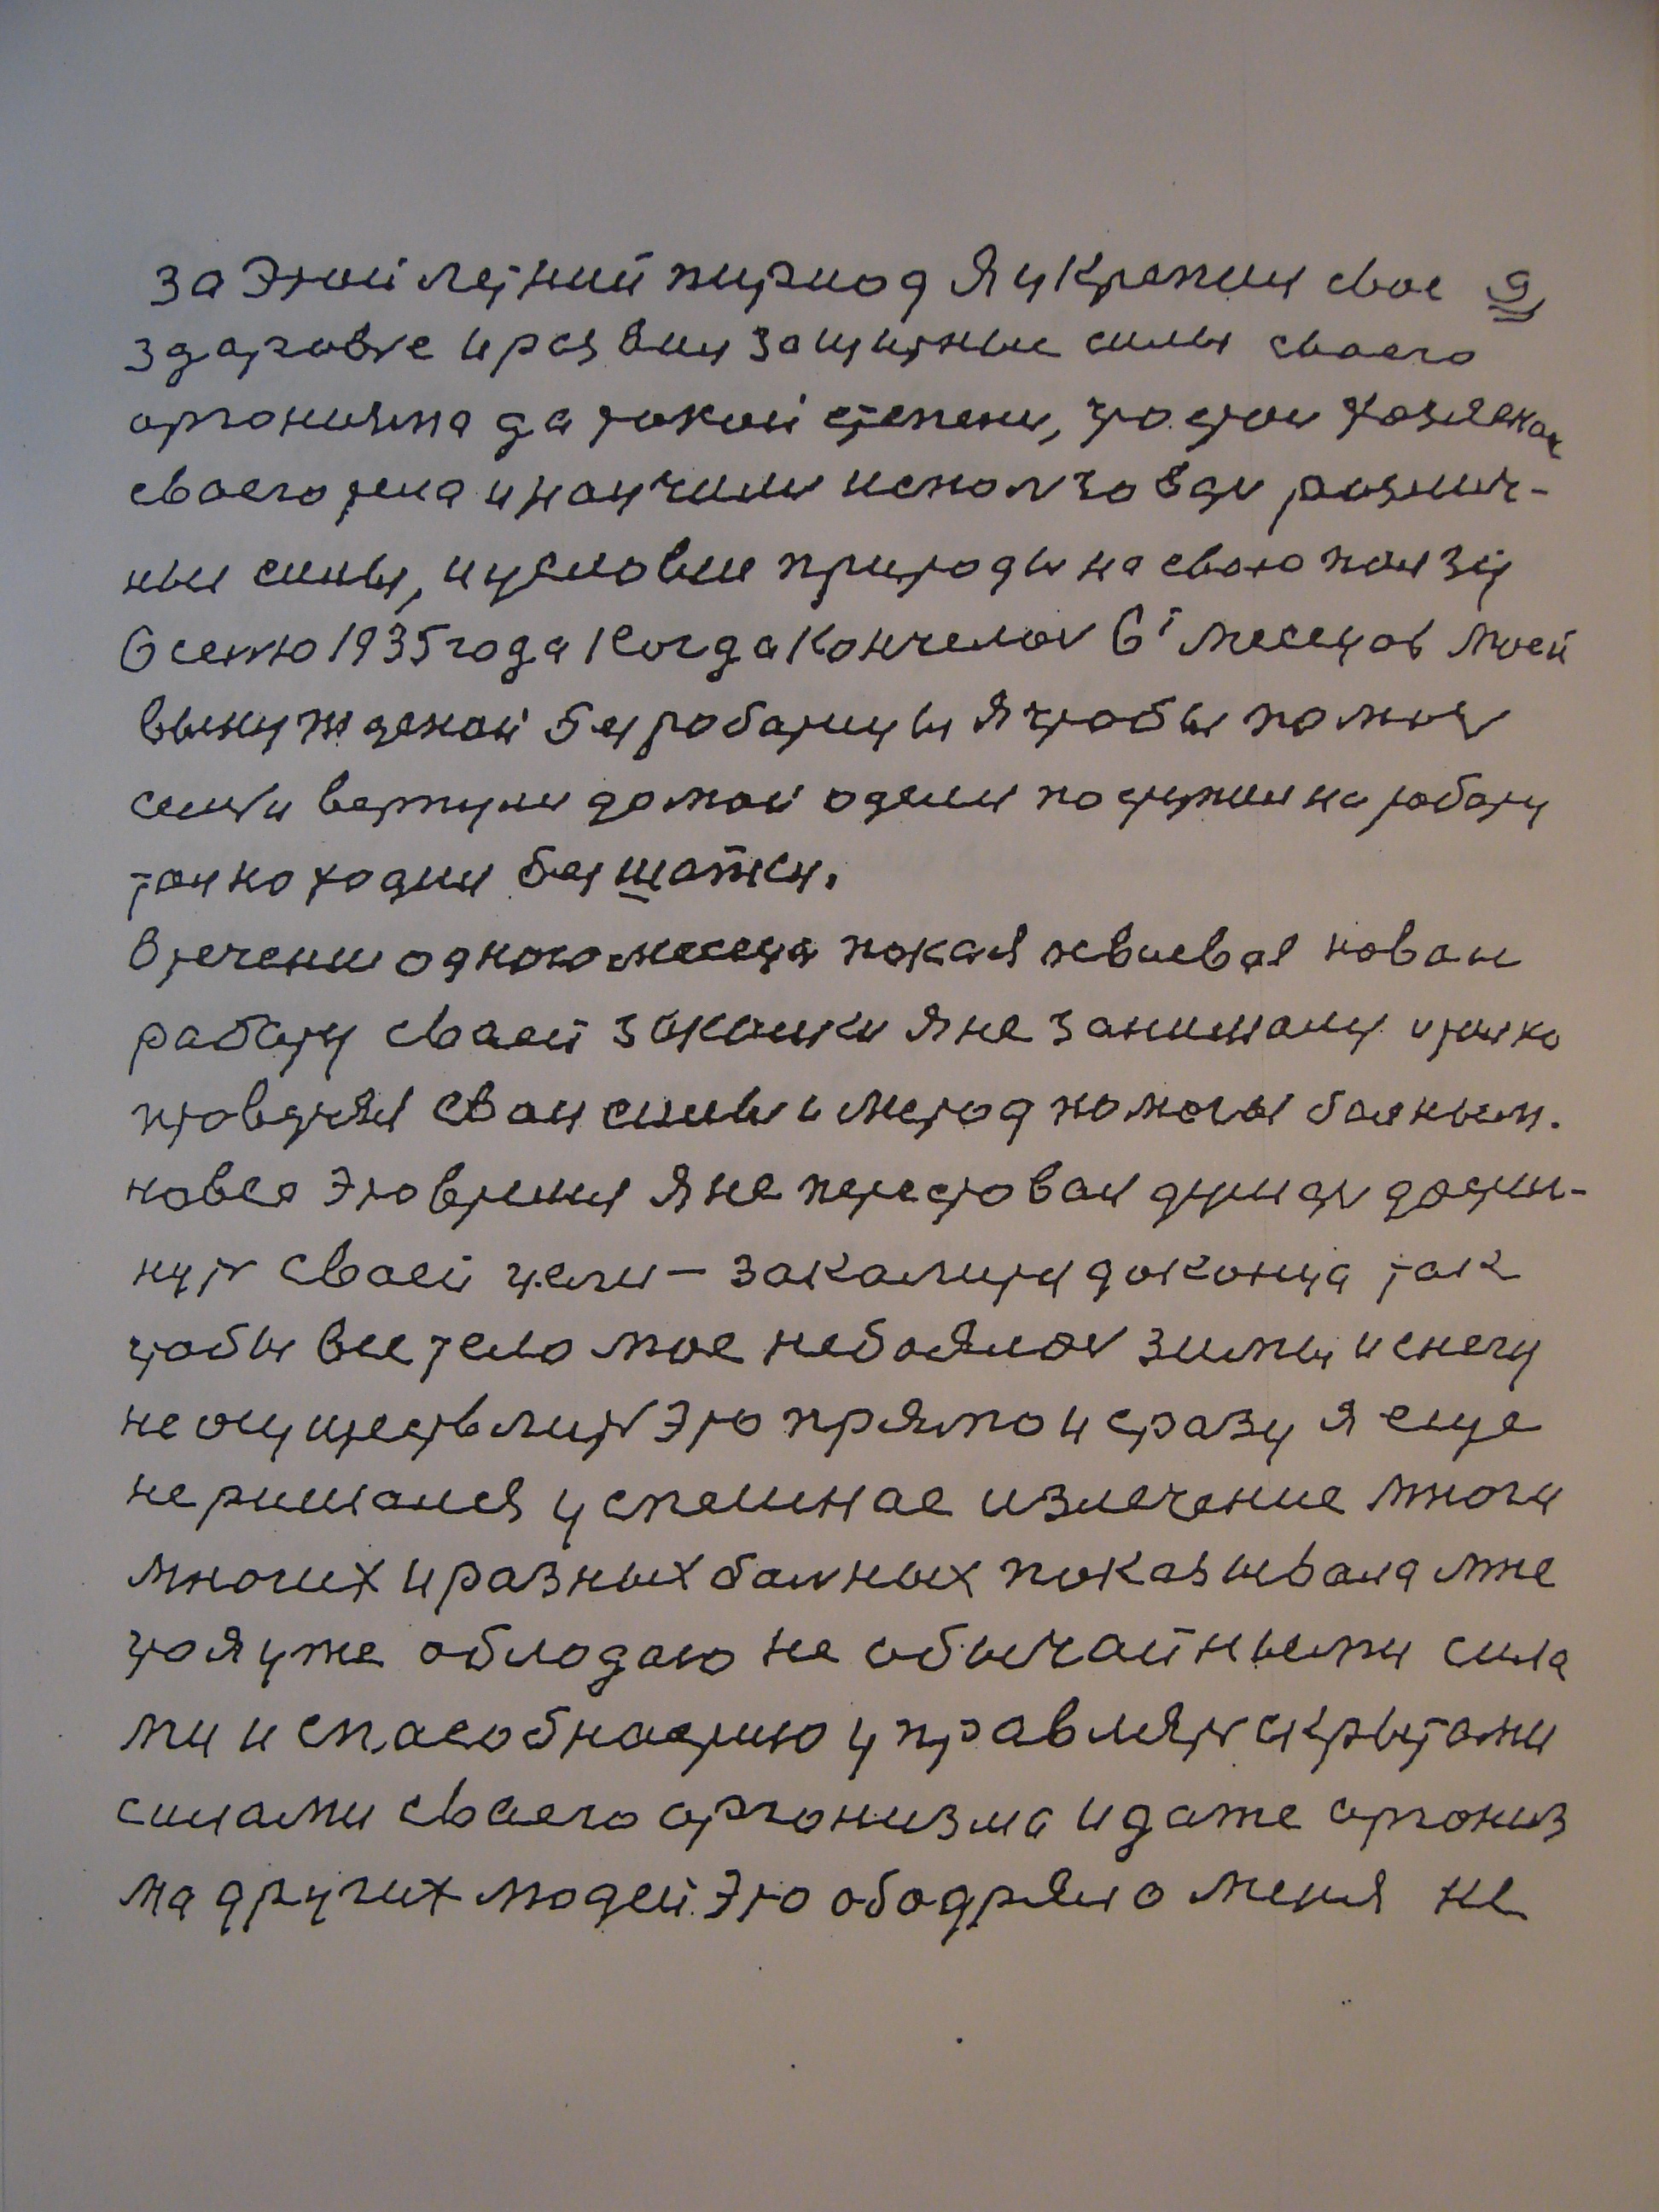 за Этой летний пириод Я укрепил свое 9,
здаровье и развил защитные силы сваего
арганизма да такой степени, что стал хозяеном
сваего тела и научился использовать различ-
ные силы, и условия природы на свою ползу
Осеню 1935 года Когда Кончелось 6i месецов моей
вынужденой безработицы Я чтобы помочь
семьи вернулся домой оделся поступил на работу
толко ходил без шапки.
В течении одного месеца пока я асваевал новаю
работу сваей закалки Я не занимался и толко
праверял сваи силы и метод помогая болным.
но все Это время Я не перестовал думать достиг-
нуть сваей цели — закалится доконца так
чтобы все тело мое небоялось зимы и снегу
но осуществлить Это прямо и сразу я еще
не ришался успешнае излечение многи
многих и разных болных показывала мне
что я уже облодаю не обычайными сила
ми и спасобностью управлять скрытами
силами сваего арганизма и даже арганиз
ма других людей. Это ободряло меня не